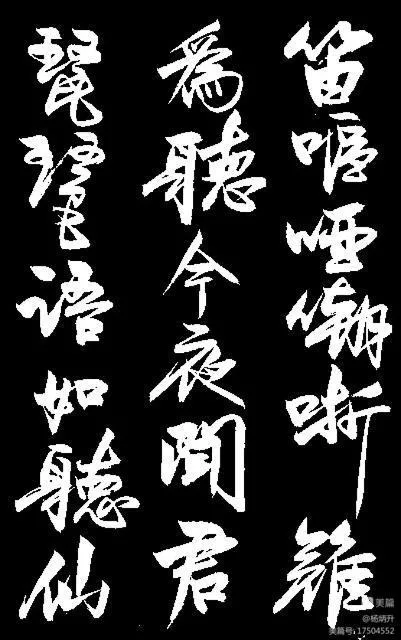 笛嘔啞嘲哳難
為聽今夜聞君
琵琶語如聽仙
美篇
@杨炳升
美篇号:17504552